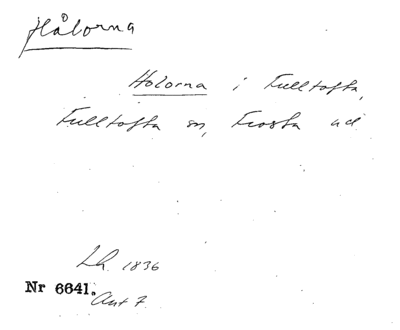 Hålorna
Holorna i Fulltofta,
Fulltofta sn, Frosta hd
Lh. 1836
Nr 6641.
Ant 7.